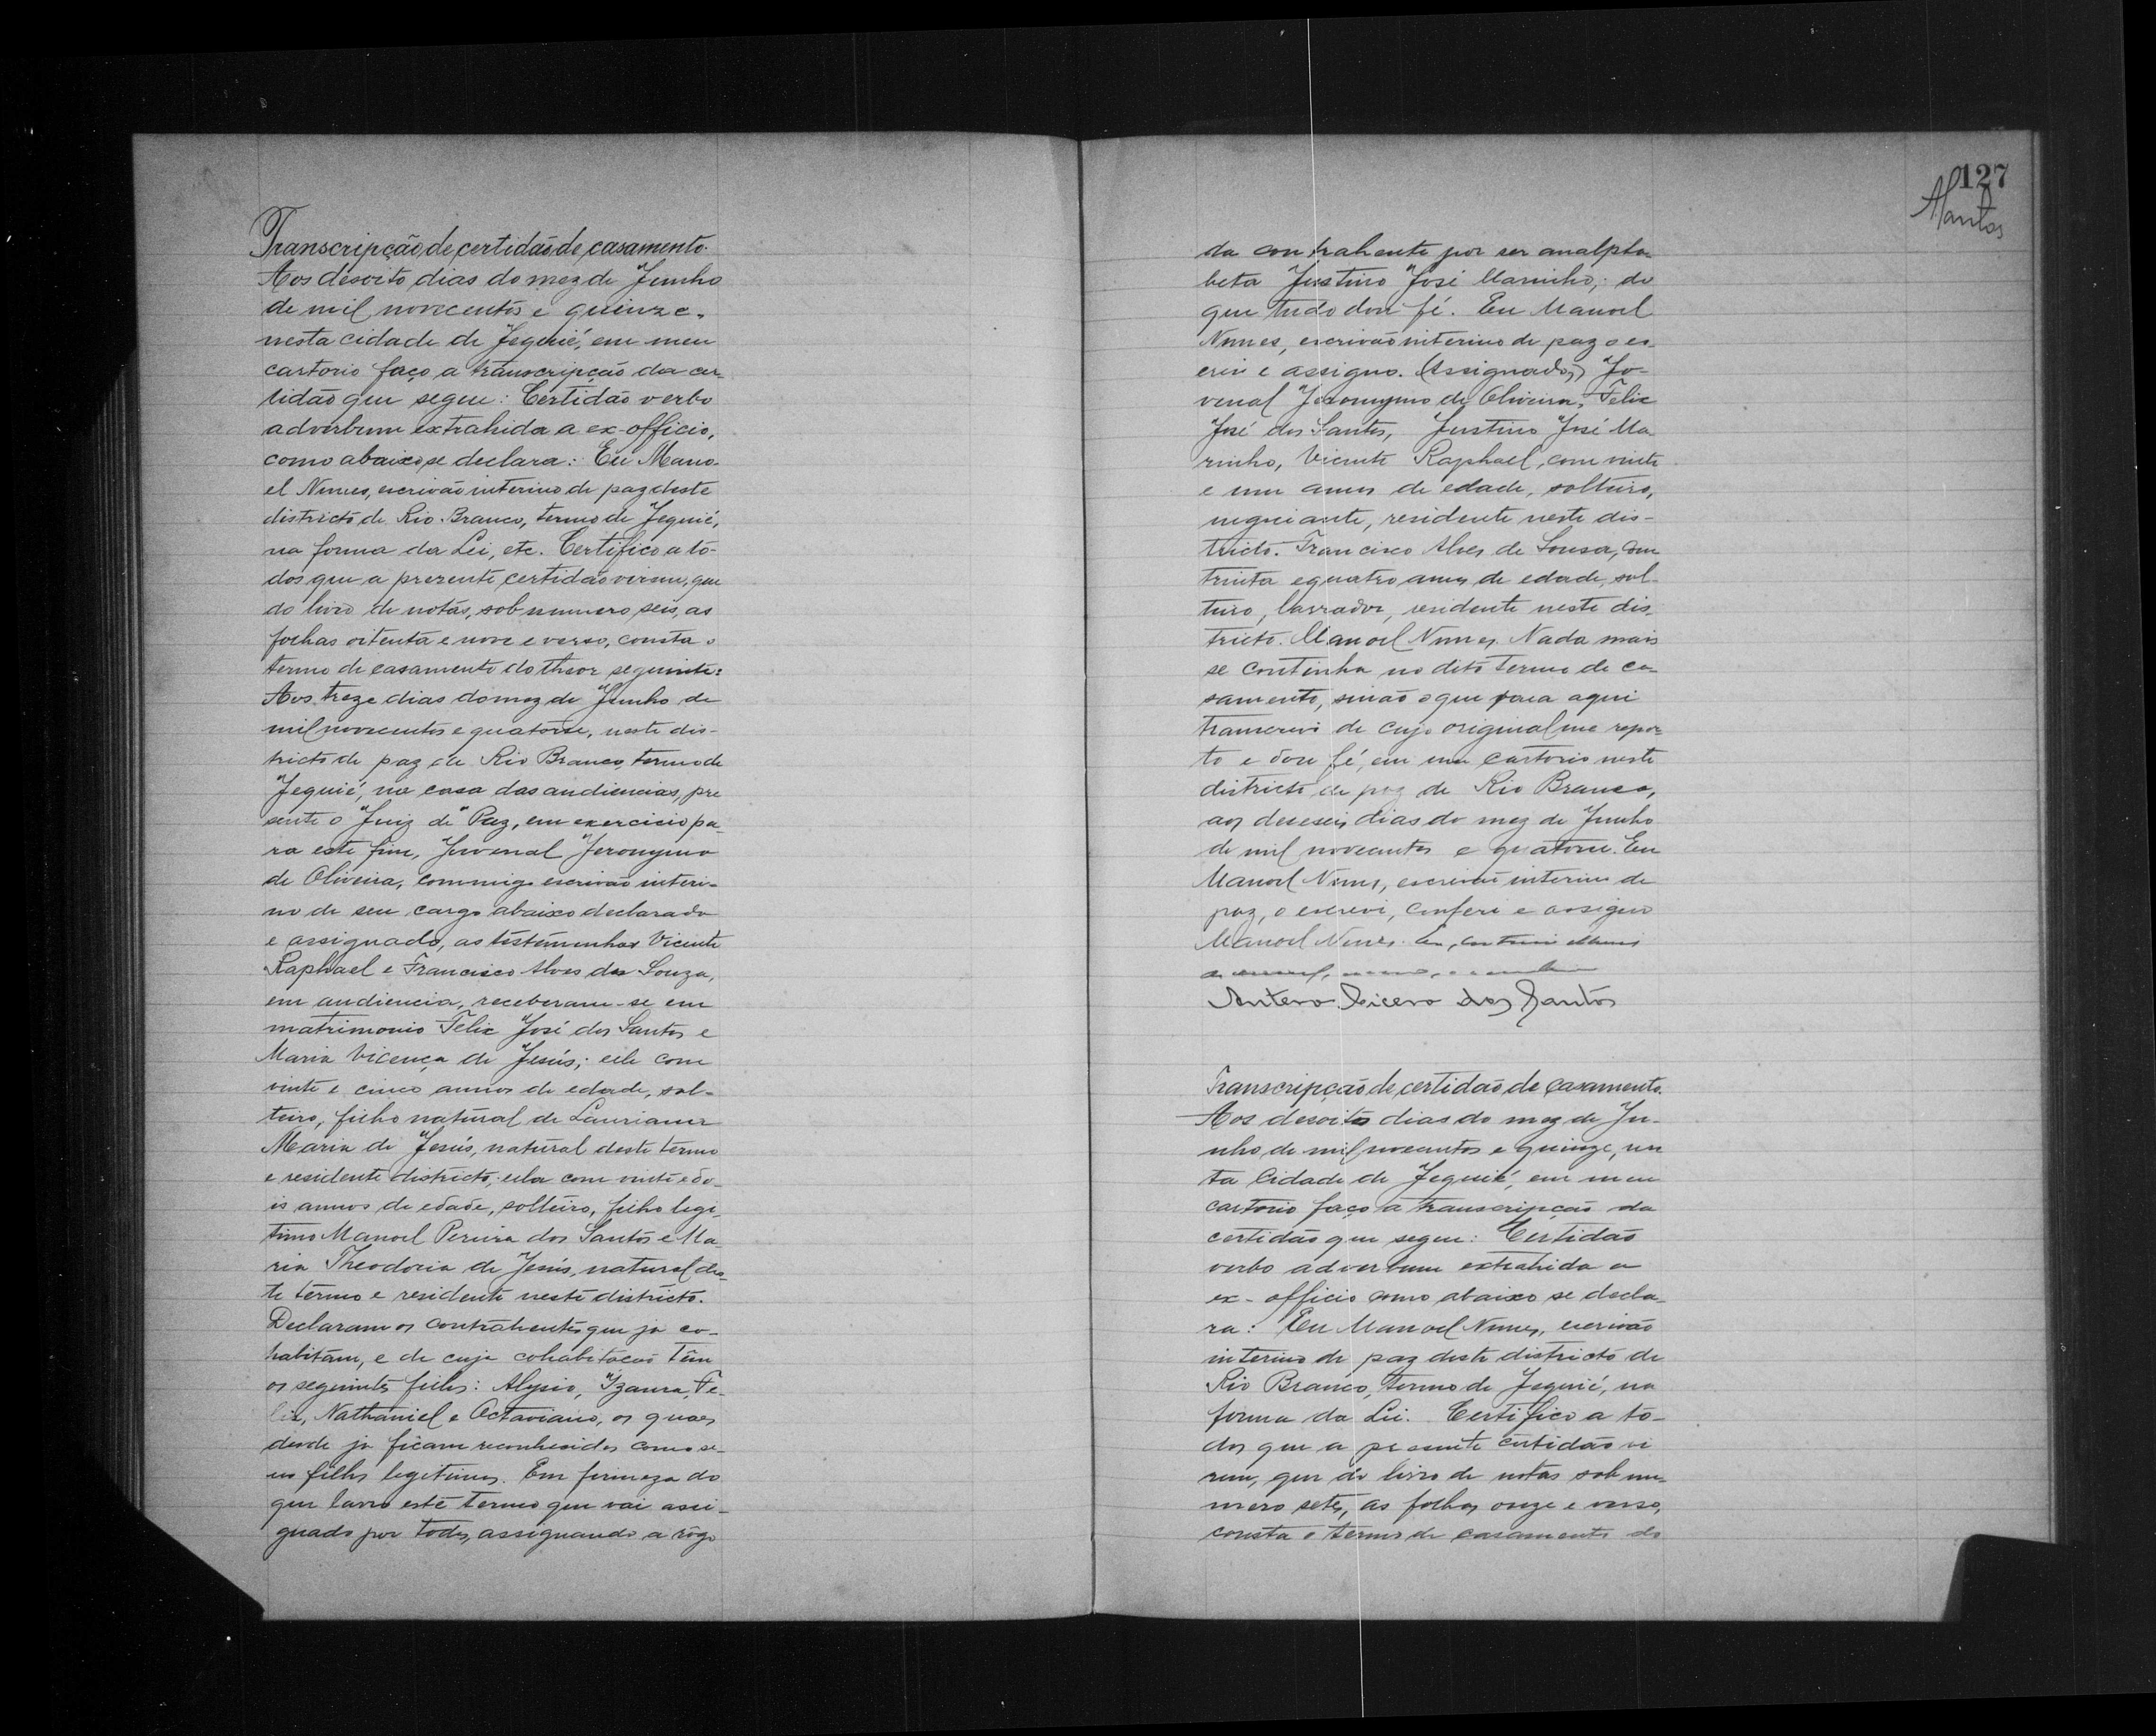 Transcripção de certidão de casamento.
Aos desoito dias do mez de Junho
de mil novecentos e quinze,
nesta cidade de Jequié, em meu
cartorio faço a transcripção da cer-
tidão que segue: Certidão verbo
adverbum extrahida a ex-officio,
como abaixo se declara: Eu Mano-
el Nunes, escrivão interino de paz deste
districto de Rio-Branco, termo de Jequié,
na forma da Lei, etc. Certifico a to-
dos que a prezente certidão virem, que
do livro de notas, sob numero seis, as
folhas oitenta e nove e verso, consta o
termo de casamento do theor seguinte:
Aos treze dias do mez de Junho de
mil novecentos e quatorse, neste dis-
tricto de paz de Rio Branco, termo de
Jequié, na casa das audiencias, pre
sente o Juiz de Paz, em exercicio pa-
ra este fim, Juvenal Jeronymo
de Oliveira, commigo escrivão interi-
no de seu cargo abaixo declarado
e assignado, as testemunhas Vicente
Raphael e Francisco Alves de Souza,
em audiencia, receberam-se em
matrimonio Felix José dos Santos e
Maria Vicença de Jesús; elle com
vinte e cinco annos de edade, sol-
teiro, filho natural de Lauriana
Maria de Jesús, natural deste termo
e residente districto; ella com vinte e do-
is annos de edade, solteiro, filho legi-
timo Manoel Pereira dos Santos e Ma-
ria Theodoria de Jesús, natural des-
te termo e residente neste districto.
Declaram os contrahentes que ja co-
habitam, e de cuja cohabitacão têm
os seguintes filhos: Alysio, Izaura, Fe-
lix, Nathaniel e Octaviano, os quaes
desde ja ficam reconhecidos como se-
us filhos legitimos. Em firmeza do
que lavro este termo que vai assi-
gnado por todos, assignando a rôgo
127
ASantos
da contrahente por ser analpha-
beta Justino José Marinho; do
que tudo dou fé. Eu Manoel
Nunes, escrivão interino de paz o es-
crivi e assigno. (Assignados) Jo-
venal Jeronymo de Oliveira, Felix
José dos Santos, Justino José Ma
rinho, Vicente Raphael, com vinte
e um annos de edade, solteiro,
negociante, residente neste dis-
tricto. Francisco Alves de Sousa, com
trinta e quatro annos de edade, sol-
teiro, lavrador, residente neste dis-
tricto. Manoel Nunes. Nada mais
se continha no dito termo de ca-
samento, sinão o que para aqui
transcrevi de cujo original me repor-
to e dou fé, em meu cartorio neste
districto de paz de Rio Branco,
aos deseseis dias do mez de Junho
de mil novecentos e quatorse. Eu
Manoel Nunes, escrivão interino de
paz, o escrevi, conferi e assigno
Manoel Nunes. Eu,
Antero Cicero dos Santos
Transcripção de certidão de casamento.
Aos desoito dias do mez de Ju-
nho de mil novecentos e quinze, nes
ta Cidade de Jequié, em meu
cartorio faço a transcripção da
certidão que segue: Certidão
verbo adverbum extrahida a
ex-officio como abaixo se decla-
ra: Eu Manoel Nunes, escrivão
interino de paz deste districto de
Rio Branco, termo de Jequié, na
forma da Lei. Certifico a to-
dos que a presente certidão vi
rem, que do livro de notas sob nu-
mero sete, as folhas onze e verso,
consta o termo de casamento do